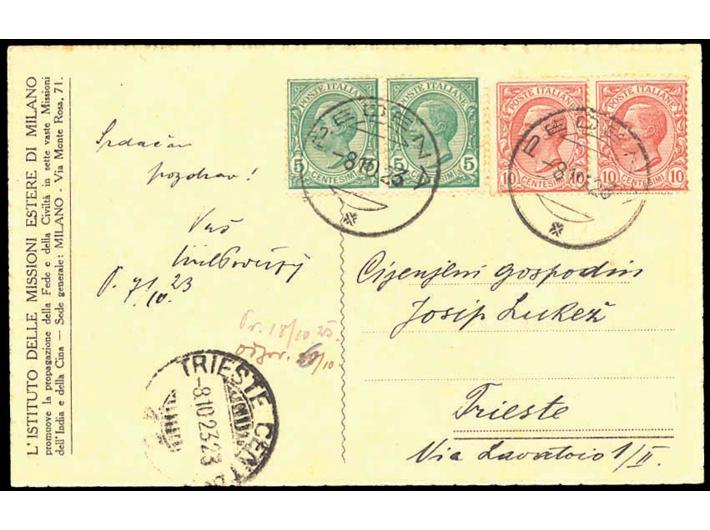 L'ISTITUTO DELLE MISSIONI ESTERE DI MILANO
promuove la propagazione della Fede e della Civiltà in sette vaste Missioni
dell'India e della Cina — Sede generale: MILANO - Via Monte Rosa, 71.
Srdačan
pozdrav!
Vaš
P. 7/10. 23
POSTE ITALIANE
5
CENTESIMI
POSTE ITALIANE
5
CENTESIMI 5
POSTE ITALIANE
10 CENTESIMI
POSTE ITALIANE
10 CENTESIMI 10
PEDENA
-8.10.23
PEDENA
-8.10.23
Cijenjeni gospodin
Josip Lukež
Trieste
Via Lavatoio 1/II.
Pr. 18/10 25.
odgov. /10
TRIESTE CENTRO
-8.10.23.23